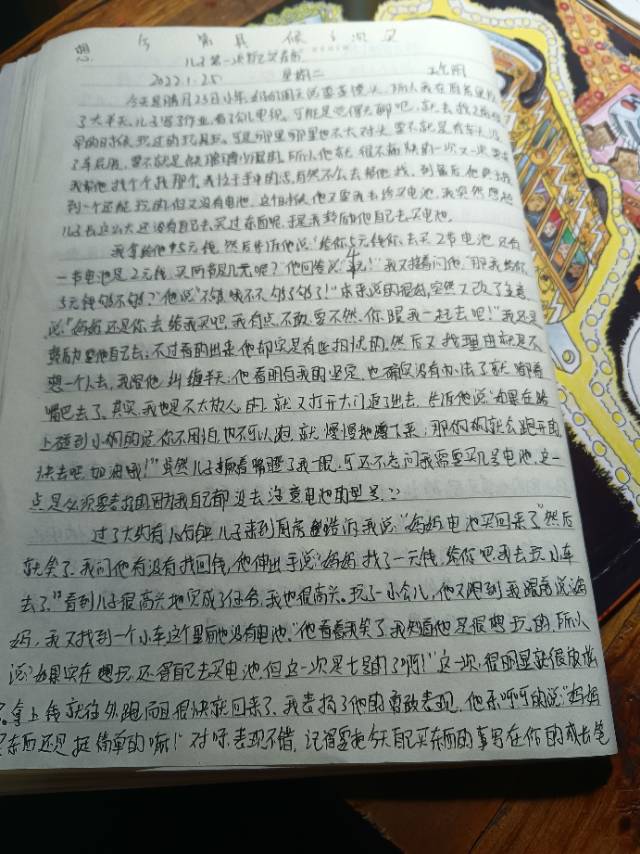 儿子第一次独立买东西
2022.1.25 星期二
今天是腊月23日小年,
了大半天,儿子写了作业,看了会儿电视,可能是觉得无聊吧,就去找之前很
早的时候玩过的玩具玩。可是那里那里也不太对头,要不就是有车头没
了车尾,要不就是 所以他就很不愉快的一次又一次要求
我帮他找个个找那个,我 手中的活,自然不会去帮他找,到最后他终于找
到一个还能玩的,但又没有电池。这个时候他又要我去给买电池,我突然想起
儿子长这么大还没有自己去买过东西呢,于是我转而叫他自己去买电池。
我拿给他5元钱,然后告诉他说:“给你5元钱你去买2节电池,只有
一节电池是2元钱,买两节是几元呢?”他回答说:“4元!”我又接着问他:“那我给你
5元钱够不够?”他说:“不够,哦不不,够了够了!”本来说的很好,突然又改了主意
说:“妈妈还是你去给我买吧,我有点不敢,要不然,你跟我一起去吧!”我还是
鼓励要他自己去,不过看的出来他却实是有些担忧的,然后又找理由就是不
想一个人去,我跟他纠缠半天,他看明白我的坚定,也确实没有办法了就嘟着
嘴巴去了。其实,我也是不太放心的,就又打开大门追了出去,告诉他说:“如果在路
上碰到小狗的话,你不用怕,也不可以跑,就慢慢地蹲下来,那狗狗就会跑开的,
快去吧,加油哦!”虽然儿子撅着嘴瞪了我一眼,可还不忘问我需要买几号电池,这一
点是必须要表扬的,因为我自己都没去注意电池的型号。
过了大约有 分钟,儿子来到厨房告诉我说:“妈妈,电池买回来了”然后
就笑了,我问他有没有找回钱,他伸出手说:“妈妈,找了一元钱,给你吧,我去玩小车
去了。”看到儿子很高兴地完成了任务,我也很高兴。玩了一小会儿,他又跑到我跟前说:“妈
妈,我又找到一个小车,这个里面也没有电池。”他看着我笑了,我知道他是很想玩的,所以
说:“如果实在想玩,还得自己去买电池,但这一次是七号的了啊!”这一次,很明显就很放松
了。拿上钱就往外跑,而且很快就回来了,我表扬了他的勇敢表现,他乐呵呵的说:“妈妈
买东西还是挺简单的嘛!”对呀,表现不错,记得要把今天自己买东西的事写在你的成长笔